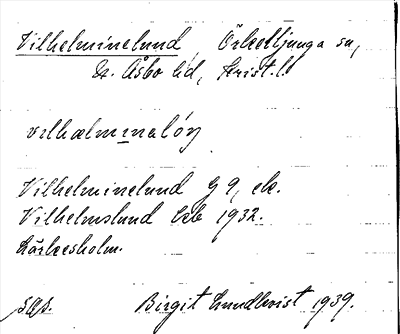 Vilhelminelund, Örkelljunga sn,
N. Åsbo hd, Krist. l.
Vilhelminelund G 9, ek.
Vilhelmslund Ekb 1932.
Lärkesholm.
Birgit Lundkvist 1939.